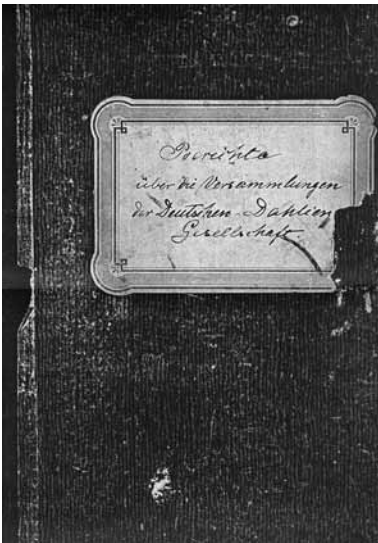 Berichte
über die Versammlungen
der Deutschen-Dahlien
Gesellschaft.